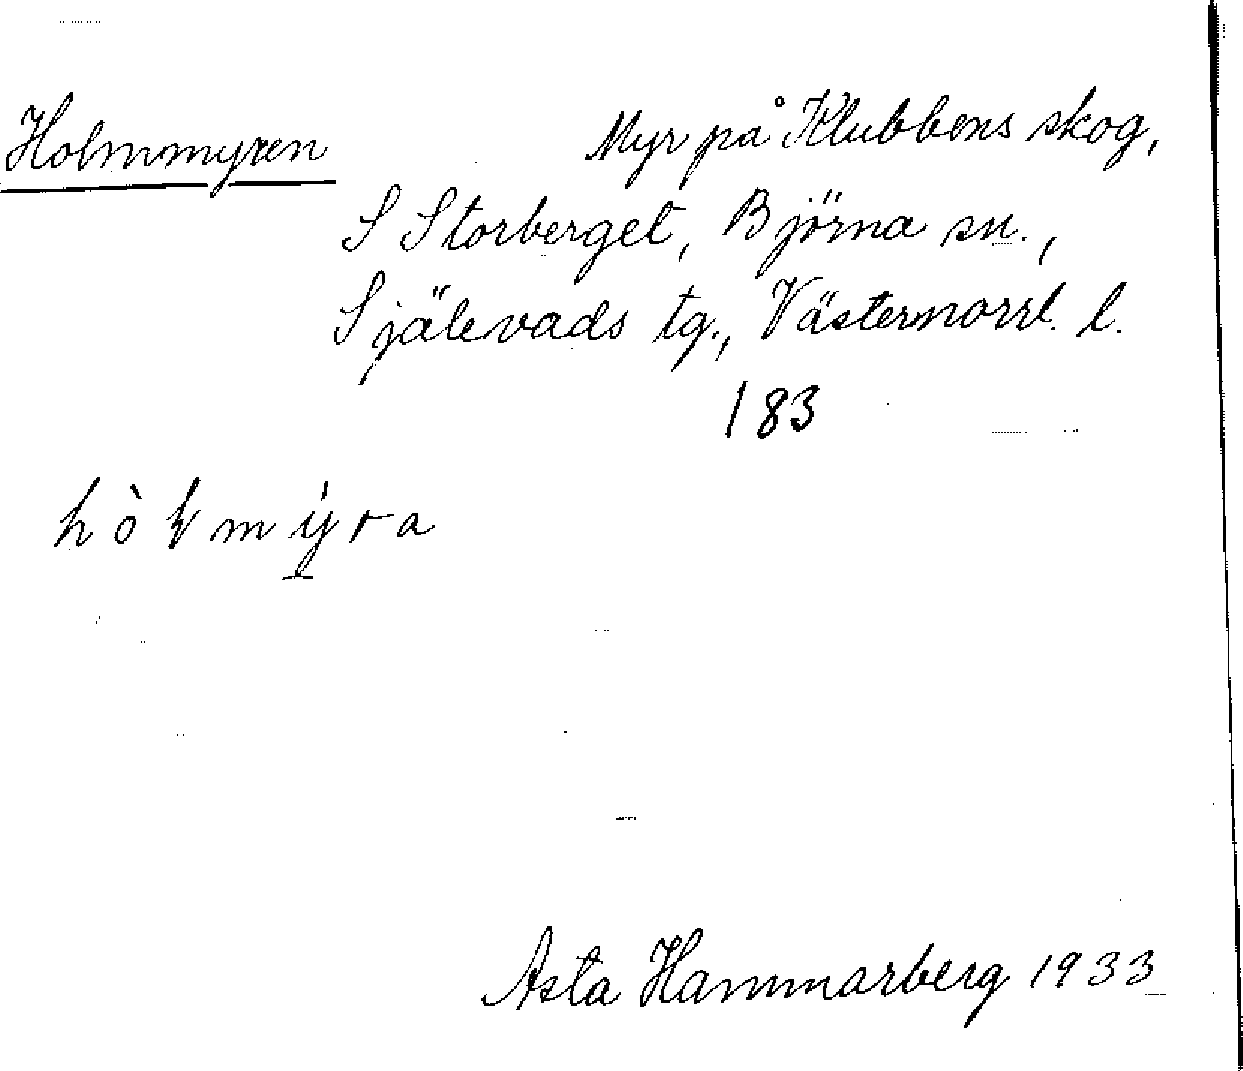 Holmmyren
Myr på Klubbens skog,
S Storberget, Björna sn.,
Själevads tg., Västernorrl. l.
183
Asta Hammarberg 1933